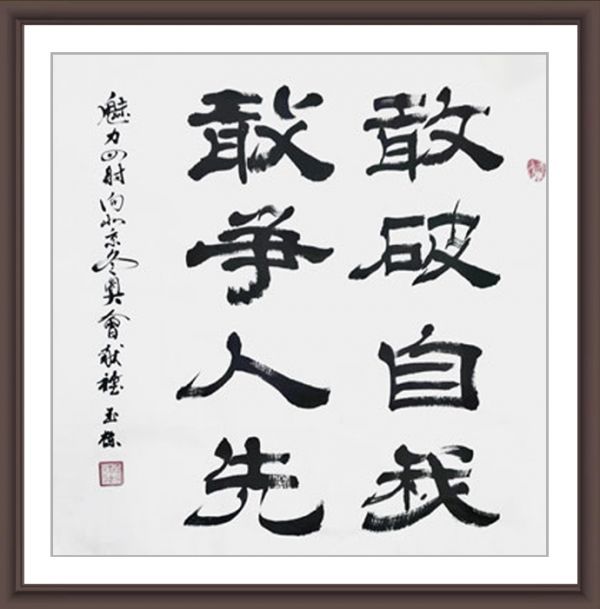 敢破自我
敢爭人先
魅力四射向北京冬奥會献禮 玉栋